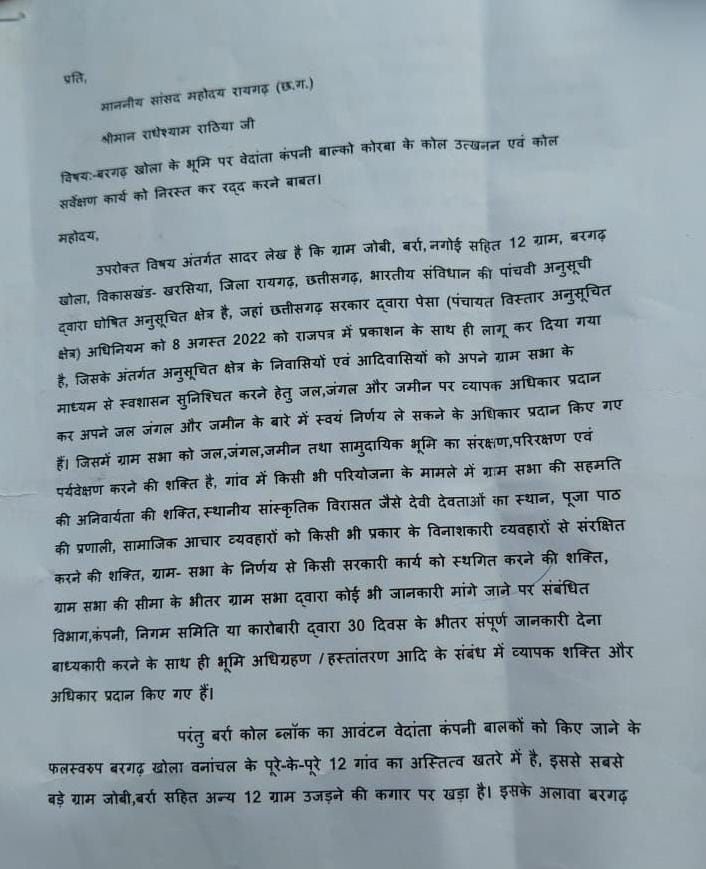 प्रति,
माननीय सांसद महोदय रायगढ़ (छ.ग.)
श्रीमान राधेश्याम राठिया जी
विषय:-बरगढ़ खोला के भूमि पर वेदांता कंपनी बाल्को कोरबा के कोल उत्खनन एवं कोल
सर्वेक्षण कार्य को निरस्त कर रद्द करने बाबत।
महोदय,
उपरोक्त विषय अंतर्गत सादर लेख है कि ग्राम जोबी, बर्रा, नगोई सहित 12 ग्राम, बरगढ़
खोला, विकासखंड- खरसिया, जिला रायगढ़, छत्तीसगढ़, भारतीय संविधान की पांचवी अनुसूची
द्वारा घोषित अनुसूचित क्षेत्र है, जहां छत्तीसगढ़ सरकार द्वारा पेसा (पंचायत विस्तार अनुसूचित
क्षेत्र) अधिनियम को 8 अगस्त 2022 को राजपत्र में प्रकाशन के साथ ही लागू कर दिया गया
है, जिसके अंतर्गत अनुसूचित क्षेत्र के निवासियों एवं आदिवासियों को अपने ग्राम सभा के
माध्यम से स्वशासन सुनिश्चित करने हेतु जल,जंगल और जमीन पर व्यापक अधिकार प्रदान
कर अपने जल जंगल और जमीन के बारे में स्वयं निर्णय ले सकने के अधिकार प्रदान किए गए
हैं। जिसमें ग्राम सभा को जल,जंगल,जमीन तथा सामुदायिक भूमि का संरक्षण,परिरक्षण एवं
पर्यवेक्षण करने की शक्ति है, गांव में किसी भी परियोजना के मामले में ग्राम सभा की सहमति
की अनिवार्यता की शक्ति, स्थानीय सांस्कृतिक विरासत जैसे देवी देवताओं का स्थान, पूजा पाठ
की प्रणाली, सामाजिक आचार व्यवहारों को किसी भी प्रकार के विनाशकारी व्यवहारों से संरक्षित
करने की शक्ति, ग्राम- सभा के निर्णय से किसी सरकारी कार्य को स्थगित करने की शक्ति,
ग्राम सभा की सीमा के भीतर ग्राम सभा द्वारा कोई भी जानकारी मांगे जाने पर संबंधित
विभाग,कंपनी, निगम समिति या कारोबारी द्वारा 30 दिवस के भीतर संपूर्ण जानकारी देना
बाध्यकारी करने के साथ ही भूमि अधिग्रहण / हस्तांतरण आदि के संबंध में व्यापक शक्ति और
अधिकार प्रदान किए गए हैं।
परंतु बर्रा कोल ब्लॉक का आवंटन वेदांता कंपनी बालकों को किए जाने के
फलस्वरुप बरगढ़ खोला वनांचल के पूरे-के-पूरे 12 गांव का अस्तित्व खतरे में है, इससे सबसे
बड़े ग्राम जोबी,बर्रा सहित अन्य 12 ग्राम उजड़ने की कगार पर खड़ा है। इसके अलावा बरगढ़